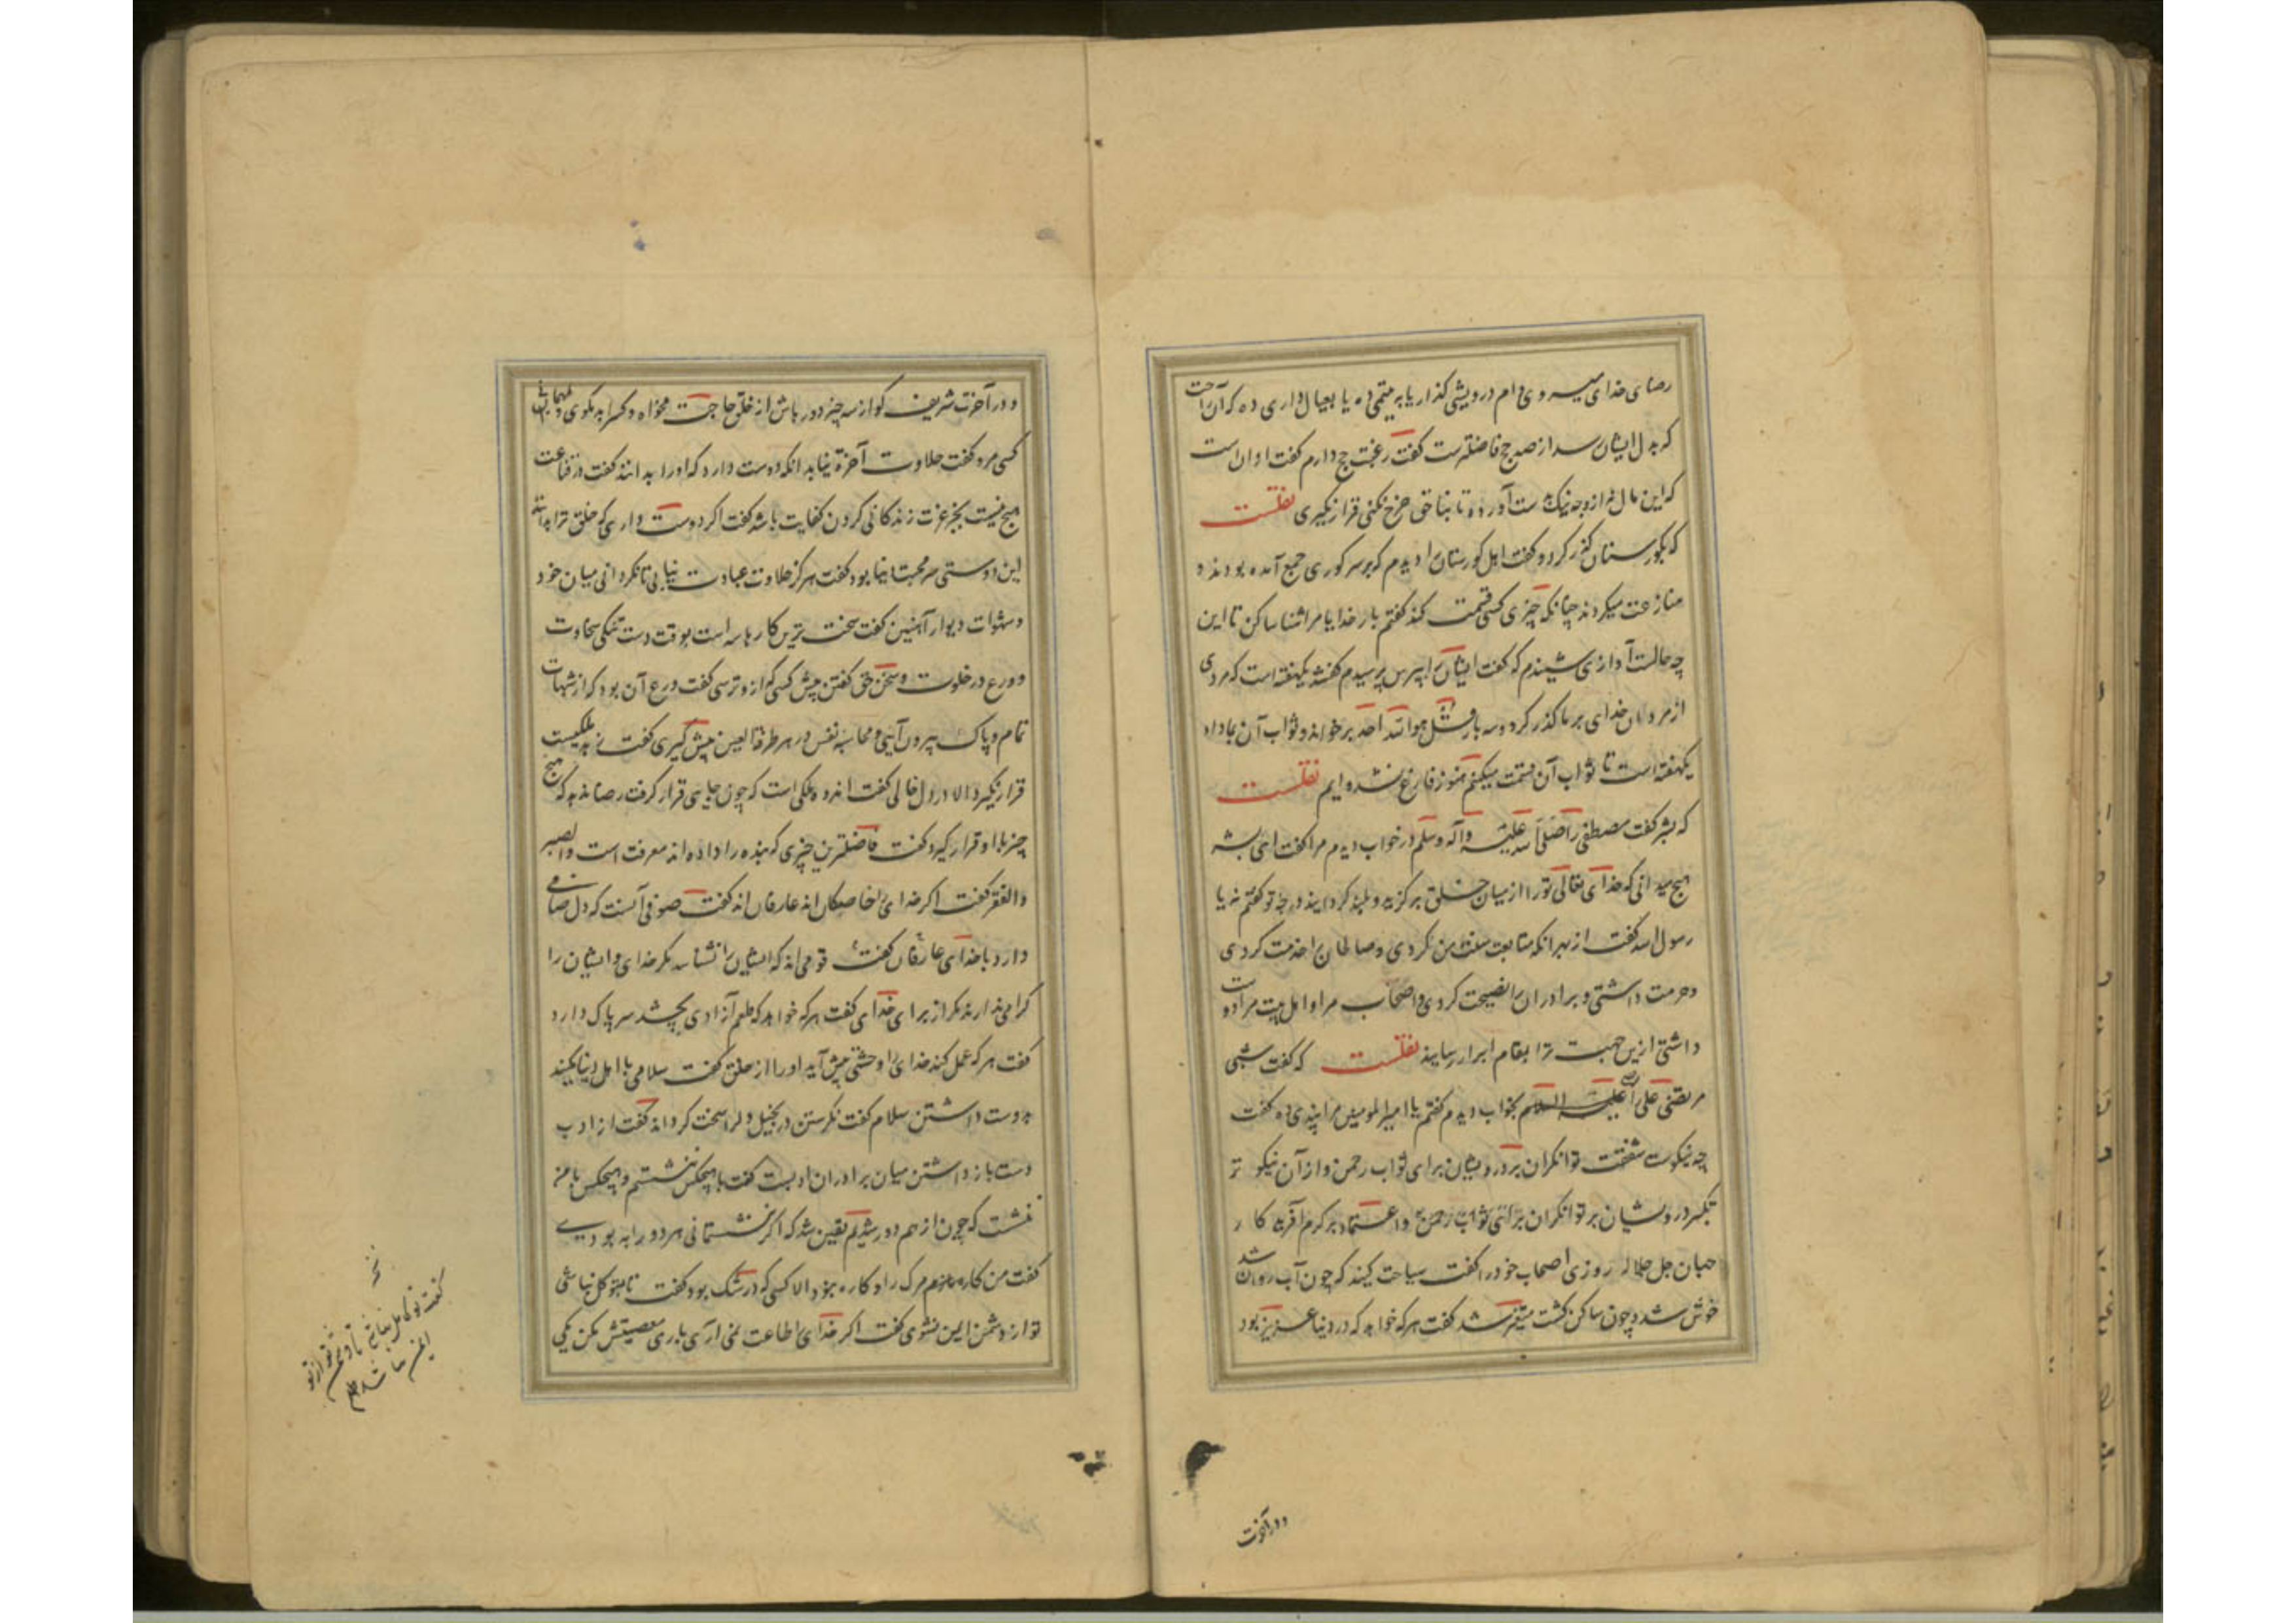 رضای خدای میروی وام درویشی گذار یا به یتیمی ده یا بعیال داری ده که آن راحت
که بدل ایشان رسد از صد حج فاضلتر است گفت رغبت حج دارم گفت او ان است
که این مال نه از وجه نیک بدست آورده تا بناحق خرج نکنی قرار نگیری نقلست
که بگورستان گذر کرد و گفت اهل گورستانرا دیدم که بر سر گوری جمع آمده بودند و
منازعت میکردند چنانکه چیزی کسی قسمت کند گفتم بار خدایا مرا شناسا کن تا این
چه حالست آوازی شنیدم که گفت ایشانرا بپرس پرسیدم گفتند یکهفته است که مردی
از مردان خدای بر ما گذر کرد و سه بار قل هو الله احد برخواند و ثواب آن بما داد
یکهفته است تا ثواب آن قسمت میکنیم هنوز فارغ نشده ایم نقلست
که بشر گفت مصطفی را صلی الله علیه وآله وسلم در خواب دیدم مرا گفت ای بشر
هیچ میدانی که خدای تعالی تو را از میان خلق برگزید و بلند گردانید درجه تو گفتم نه یا
رسول الله گفت از بهر آنکه متابعت سنت من کردی و صالحان را خدمت کردی
و حرمت داشتی و برادران را نصیحت کردی و اصحاب مرا و اهل بیت مرا دوست
داشتی ازین جهت ترا بمقام ابرار رسانید نقلست که گفت شبی
مرتضی علی را علیه السلام بخواب دیدم گفتم یا امیر المومنین مرا پندی ده گفت
چه نیکوست شفقت توانگران بر درویشان برای ثواب رحمن و از آن نیکو تر
تکبر درویشان بر توانگران برای ثواب رحمن و اعتماد بر کرم آفریدکار
جهان جل جلاله روزی اصحاب خود را گفت سیاحت کنید که چون آب روان شد
خوش شد و چون ساکن گشت متغیر شد گفت هر که خواهد که در دنیا عزیز بود
ودر آخرت
و در آخرت شریف گو از سه چیز دور باش از خلق حاجت مخواه و کسرا بد مگوی و بمهمانی
کسی مرو گفت حلاوت آخرة نیابد آنکه دوست دارد که او را بدانند گفت در قناعت
هیچ نیست بجز عزت زندگانی کردن کفایت باشد گفت اگر دوست داری که خلق ترا بدانند
این دوستی سر محبت دنیا بود گفت هرگز حلاوت عبادت نیابی تا نگردانی میان خود
و شهوات دیوار آهنین گفت سخت ترین کارها سه است بوقت دست تنگی سخاوت
و ورع در خلوت و سخن حق گفتن پیش کسی که ازو ترسی گفت ورع آن بود که از شبهات
تمام و پاک بیرون آئی و محاسبه نفس در هر طرفة العین پیش گیری گفت زهد ملکیست
قرار نگیرد الا در دل خالی گفت اندوه ملکی است که چون جایی قرار گرفت رضا ندهد که هیچ
چیز با او قرار گیرد گفت فاضلترین چیزی که بنده را داده اند معرفت است والصبر
والفقر گفت اگر خدای را خاصگان اند عارفان اند گفت صوفی آنست که دل صافی
دارد با خدای عارفان گفت قومی اند که ایشان را نشناسد مگر خدای و ایشان را
گرامی ندارند مگر از برای خدای گفت هر که خواهد که طعم آزادی بچشد سر پاک دارد
گفت هر که عمل کند خدای را وحشتی پیش آید او را از خلق گفت سلامی با اهل دنیا کنید
بدوست داشتن سلام گفت نگرستن در بخیل دل را سخت گرداند گفت از ادب
دست باز داشتن میان برادران ادبست گفت با هیچکس ننشستم و هیچکس با من
ننشست که چون از هم دور شدیم یقین شد که اگر ننشستمانی هر دو را به بودی
گفت من کاره‌ام مرگ را و کاره نبود الا کسی که در شک بود گفت تا متوکل نباشی
تو از دشمن ایمن نشوی گفت اگر خدای را طاعت نمی آری باری معصیتش مکن یکی
گفت تو کامل نباشی تا دشمن تو از تو
ایمن نباشد